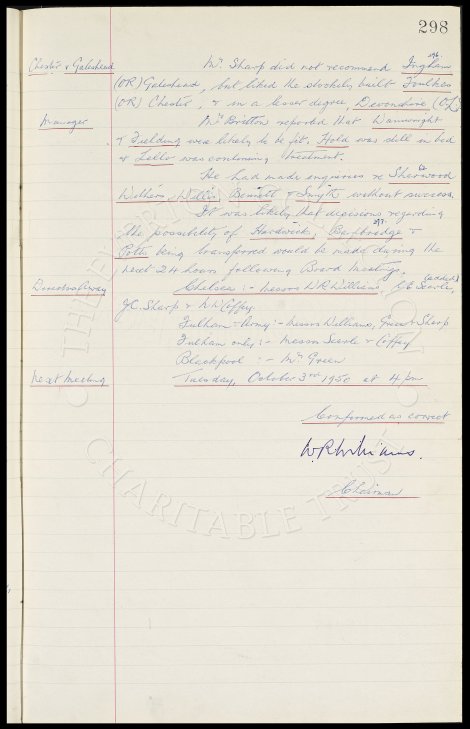 298
Chester & Gateshead Mr. Sharp did not recommend Ingham
(OR) Gateshead, but liked the stockily built Foulkes
(OR) Chester, & in a lesser degree, Devonshire (OL).
Manager Mr Britton reported that Wainwright
& Fielding were likely to be fit, Hold was still in bed
& Lello was continuing treatment.
He had made enquiries re Sherwood
Withers, Willis, Bennett & Smyth without success.
It was likely that decisions regarding
the possibility of Hardwick,
Potts being transferred would be made during the
next 24 hours following Board Meetings.
(added)
Directors Away Chelsea :- Messrs W R Williams, C E Searle,
J.C. Sharp & N W Coffey
Fulham & Army :- Messrs Williams, Green & Sharp
Fulham only :- Messrs Searle & Coffey
Blackpool :- Mr. Green
Next Meeting Tuesday, October 3rd 1950 at 4 pm
Confirmed as correct
W.R. Williams.
Chairman
THE EVERTON
CHARITABLE TRUST